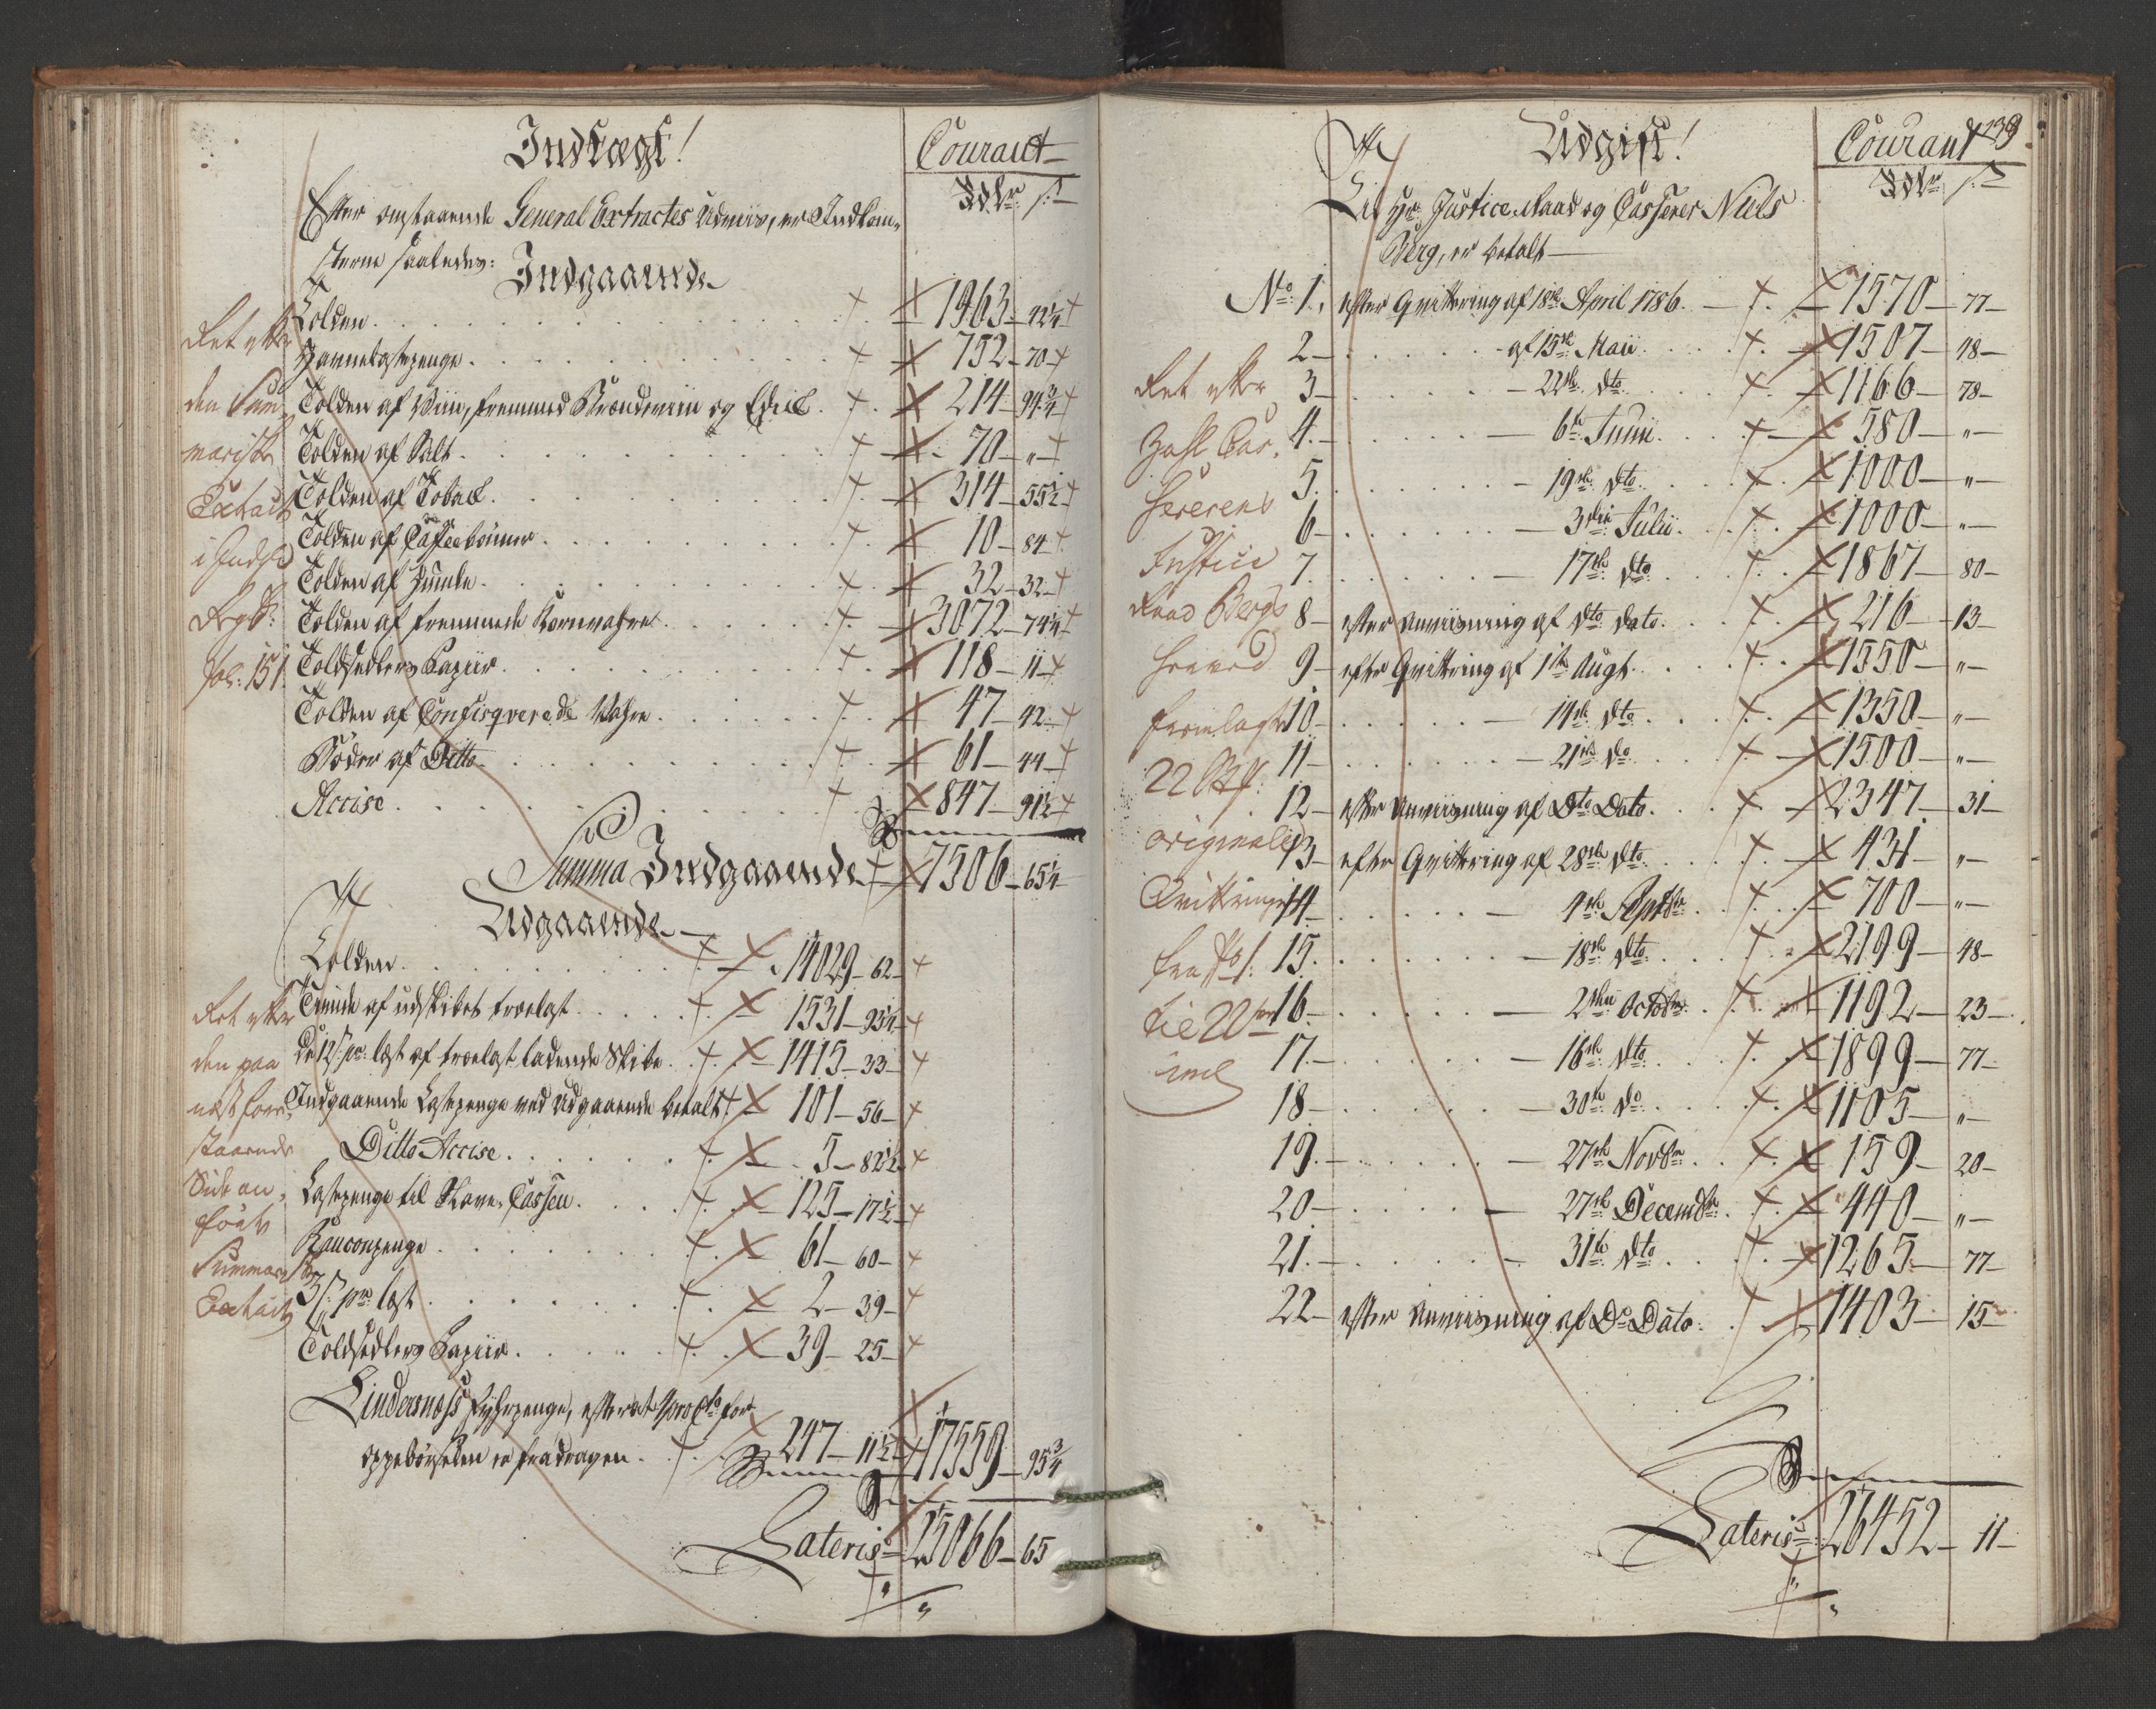 Indtægt!
Courant
Rdlr. s.
Efter omstaaende General Extractes Udviis, er Indkom-
sterne saaledes:
Indgaaende
Tolden 1963 - 42¼
Hannelastepenge 752 - 70
Tolden af Viin, fremmed Brændeviin og Edik 214 - 94¾
Tolden af Salt 70 - "
Tolden af Toback 314 - 55½
Tolden af Caffeebønner 10 - 84
Tolden af Humle 32 - 32
Tolden af fremmede Kornvahre 3072 - 74¼
Toldsedlers Papiir 118 - 11
Tolden af Confisqverede Wahre 47 - 42
Bøder af Ditto 61 - 44
Accise 847 - 91½
Summa Indgaaende 7506 - 65¼
Udgaaende
Tolden 14029 - 62
Tiende af udskibet trælast 1531 - 95¼
De 12 s. pr. læst af trælast ladende Skibe 1415 - 33
Indgaaende Lastepenge ved Udgaaende betalt 101 - 56
Ditto Accise 5 - 82½
Lastepenge til Slave-Cassen 125 - 17½
Ranconpenge 61 - 60
3 s. pr. læst 2 - 39
Toldsedlers Papiir 39 - 25
Lindersnæss Fyhrpenge, efter at 4 pro Cto for
oppebørselen er fradragen 247 - 11½ 17559 - 95¾
Lateris 25066 - 65
Ret efter
den Sum-
mariske
Extract
i
Fol: 151
Ret efter
den paa
næst fore-
staaende
Side an-
førte
Summariske
Extract
239
Udgift!
Courant
Rdlr. s.
Til Hr. Justice-Raad og Casserer Niels
Berg, er betalt
No. 1, efter Qvittering af 18de April 1786. 1570 - 77
2 - af 15de Maii 1507 - 48
3 - 22de dto 1166 - 78
4 - 6te Junii 580 - "
5 - 19de dto 1000 - "
6 - 3die Julii 1000 - "
7 - 17de dto 1867 - 80
8 - efter Anviisning af dto dato 216 - 13
9 - efter Qvittering af 1ste Augt. 1550 - "
10 - 14de dto 1350 - "
11 - 21de do 1500 - "
12 - efter Anviisning af Dto Dato 2347 - 31
13 - efter Qvittering af 28de dto 431 - "
14 - 4de Septbr. 700 - "
15 - 18de dto 2199 - 48
16 - 2den Octobr. 1192 - 23
17 - 16de dto 1899 - 77
18 - 30te do 1105 - "
19 - 27de Novbr. 159 - 20
20 - 27de Decembr. 440 - "
21 - 31te dto 1265 - 77
22 - efter Anviisning af Do Dato 1403 - 15
Lateris 26452 - 11
Ret efter
Zahl Cas-
sererens
Justice
Raad Bergs
herved
fremlagte
22 Stk
originale
Qvitteringer
fra No 1
til 22
incl